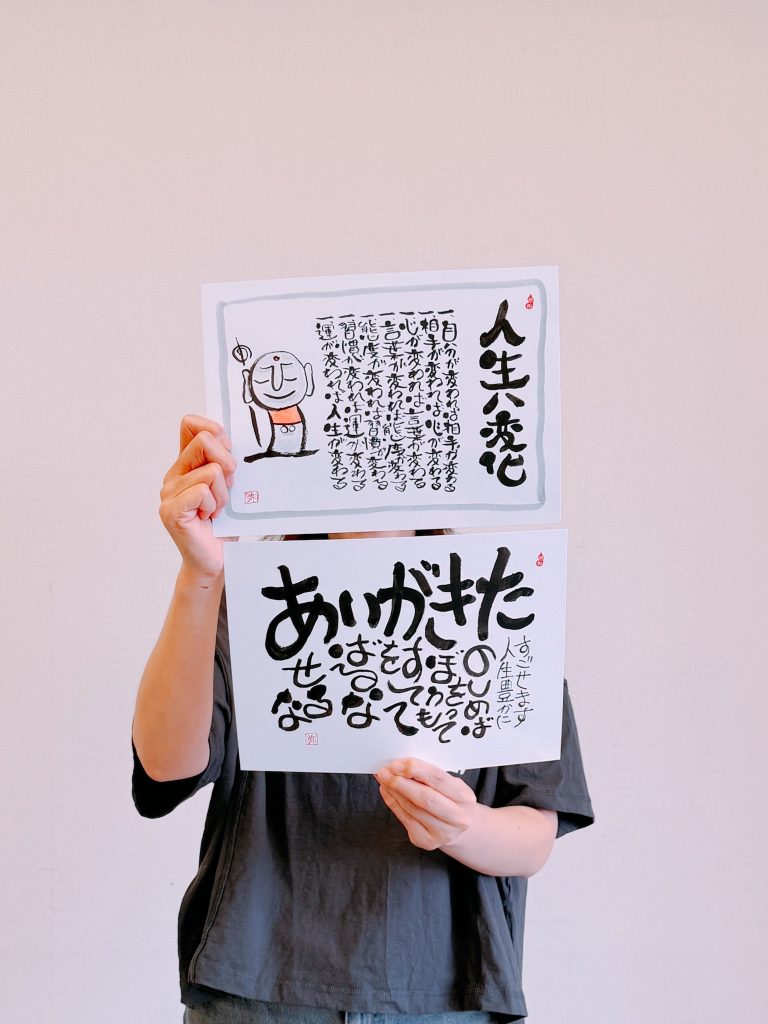 人生八変化
一、自分が変われば相手が変わる
一、相手が変われば心が変わる
一、心が変われば言葉が変わる
一、言葉が変われば態度が変わる
一、態度が変われば習慣が変わる
一、習慣が変われば運が変わる
一、運が変われば人生が変わる
あせるな
いばるな
がをすてて
きぼうをもって
たのしめば
人生豊かに
すごせます